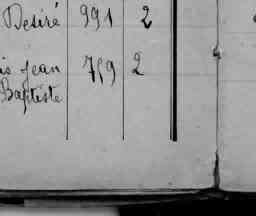 Desiré 991 2
is Jean 759 2
Baptiste